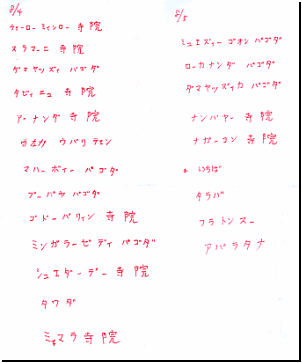 8/4
ティーローミンロー 寺院
スラマニ 寺院
ダマヤッズィカ パゴダ
タビィニュ 寺院
アーナンダ 寺院
ウパリ テェン
マハーボディー パゴダ
ブーパヤ パゴダ
ゴドーパリィン 寺院
ミンガラーゼディ パゴダ
シュエグーヂー 寺院
タワダ
ミェマラ 寺院
8/5
シュエズィーゴオン パゴダ
ローカナンダ パゴダ
ダマヤッズィカ パゴダ
ナンパヤー 寺院
ナガーヨン 寺院
* いちば
タラバ
フラトンスー
アパラタナ